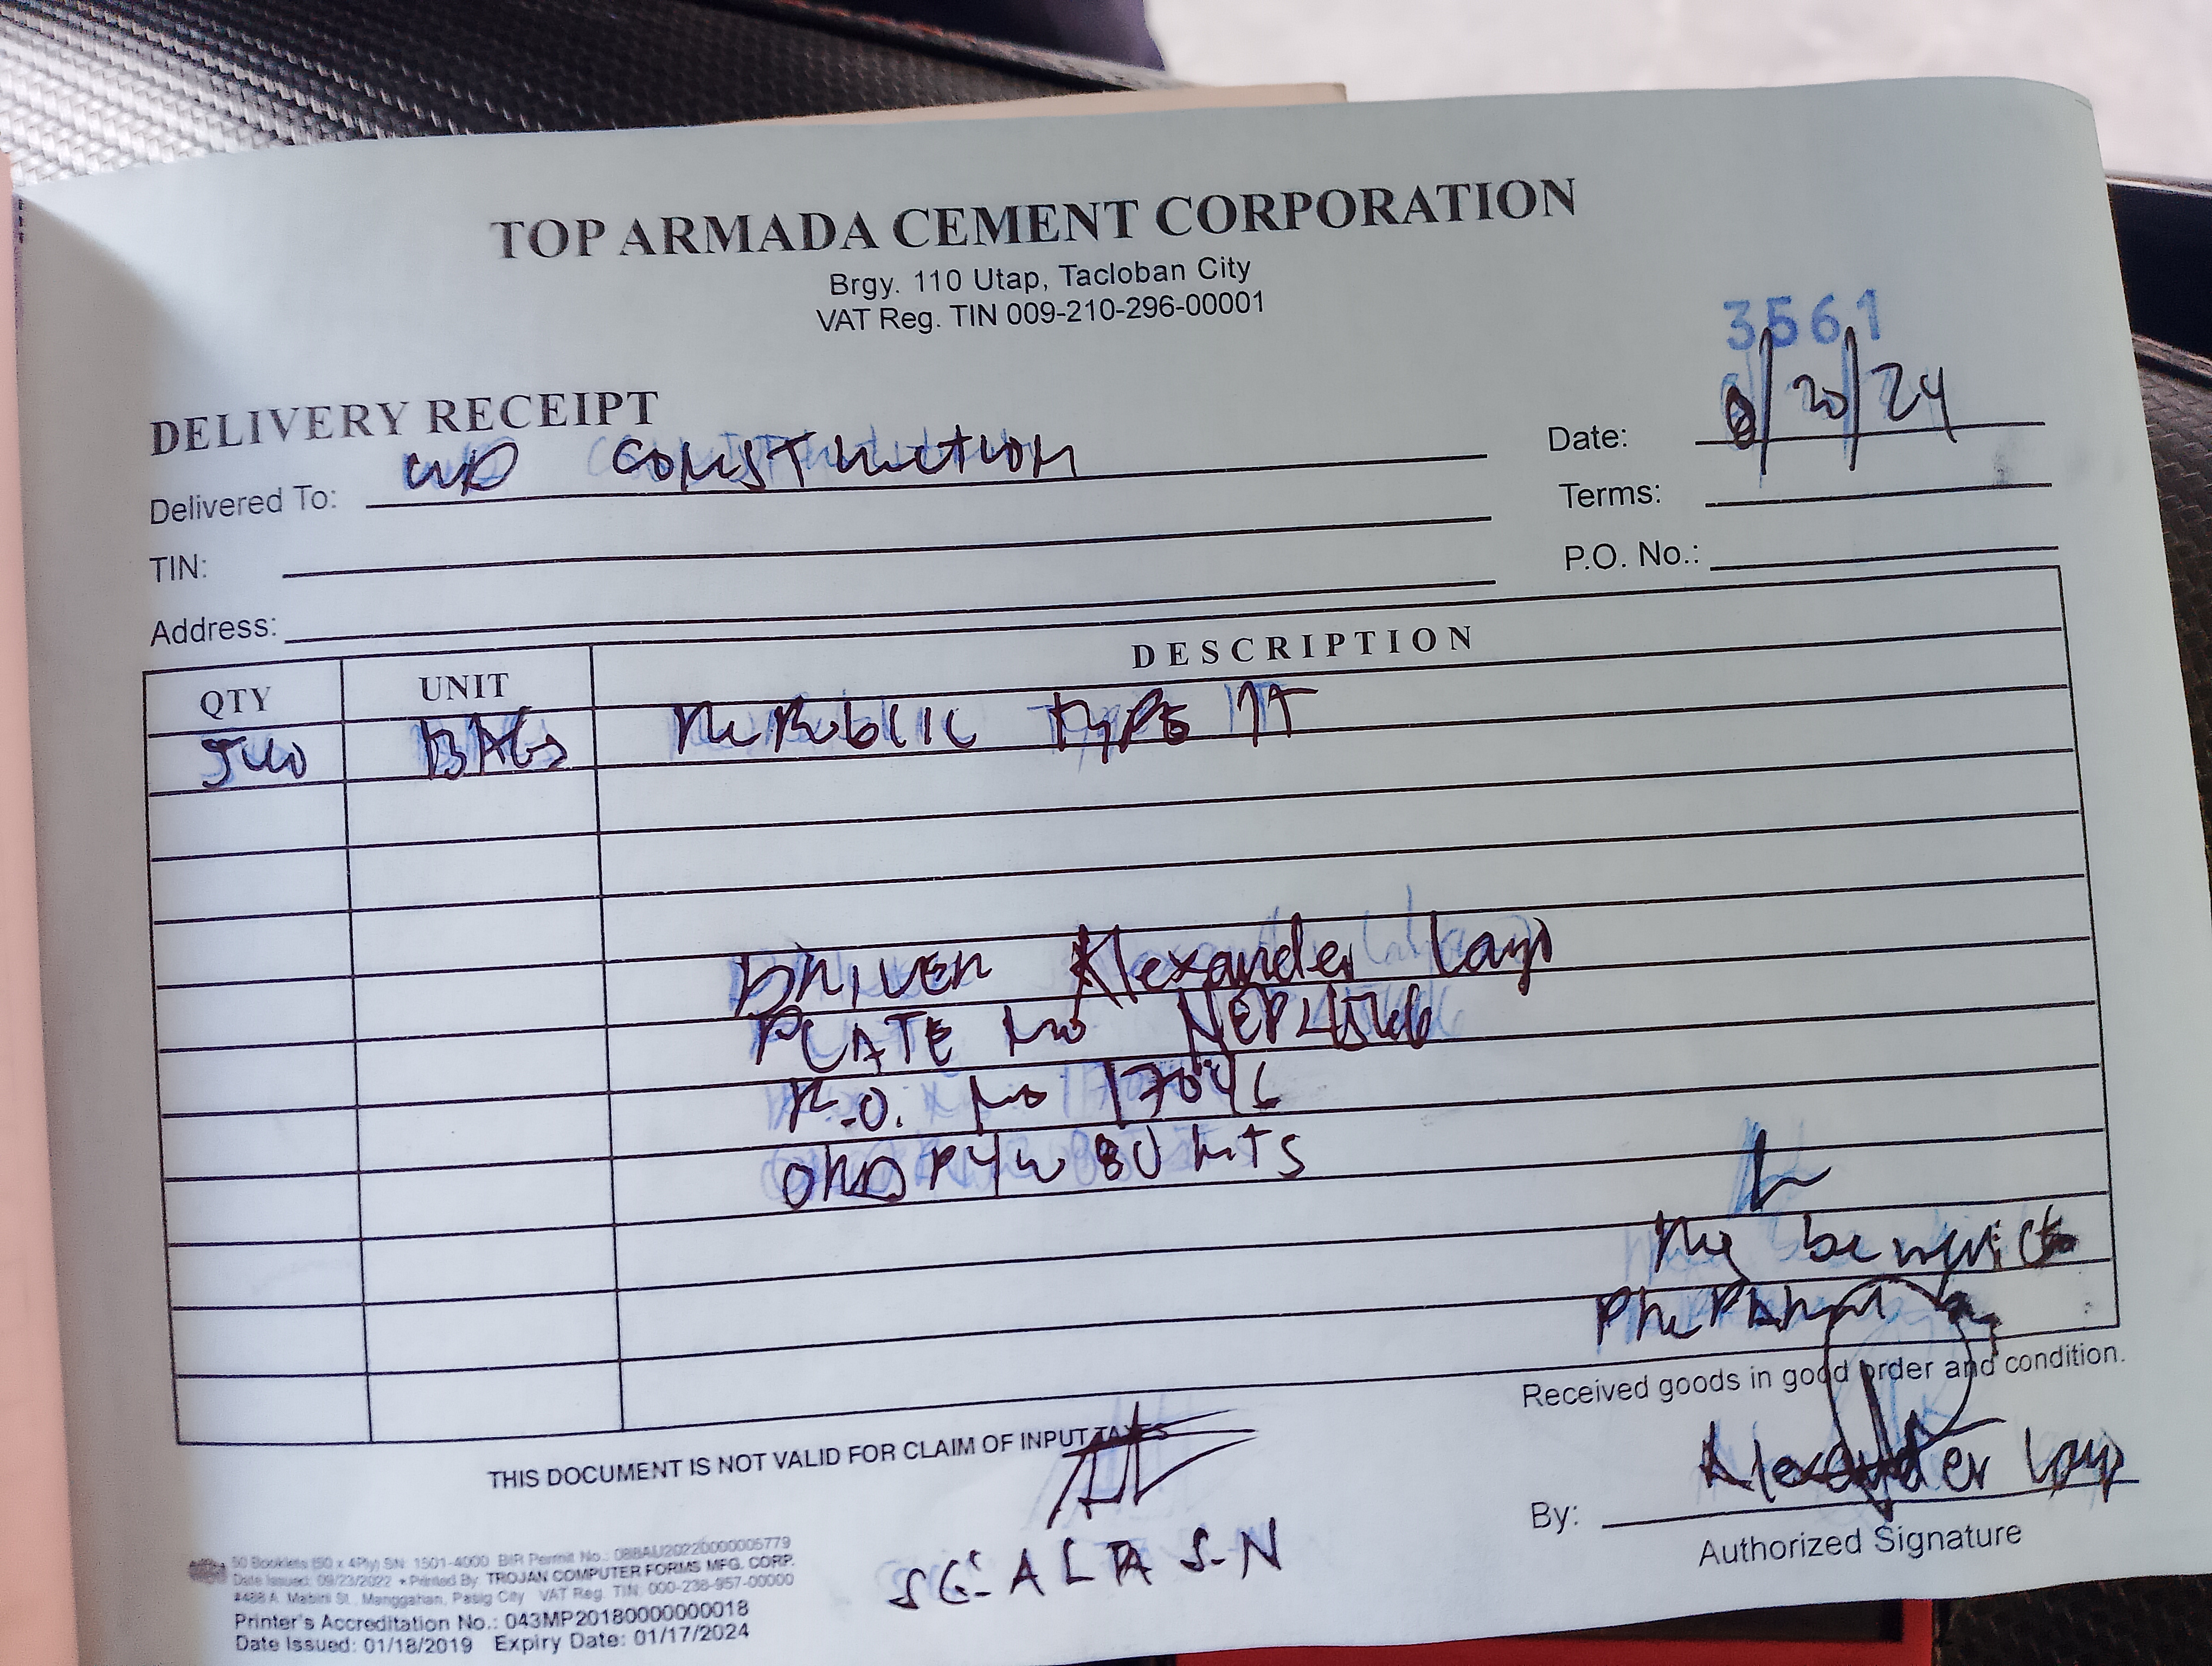 TOP ARMADA CEMENT CORPORATION
Brgy. 110 Utap, Tacloban City
VAT Reg. TIN 009-210-296-00001
3561
DELIVERY RECEIPT
Date: 8/20/24
Delivered To: CONSTRUCTION
Terms:
TIN:
P.O. No.:
Address:
QTY UNIT DESCRIPTION
540 BAGS REPUBLIC TYPE 1T
DRIVER Alexander Layo
PLATE NO NEP4566
P.O. NO 17046
80
Received goods in good order and condition.
THIS DOCUMENT IS NOT VALID FOR CLAIM OF INPUT TAXES
By: Alexander Layo
Authorized Signature
SG: ALTA S-N
50 Booklets (50 x 4Ply) SN: 1501-4000 BIR Permit No.: 088AU20220000005779
Date Issued: 09/23/2022 • Printed By: TROJAN COMPUTER FORMS MFG. CORP.
#488 A. Mabini St., Manggahan, Pasig City VAT Reg. TIN: 000-238-957-00000
Printer's Accreditation No.: 043MP20180000000018
Date Issued: 01/18/2019 Expiry Date: 01/17/2024